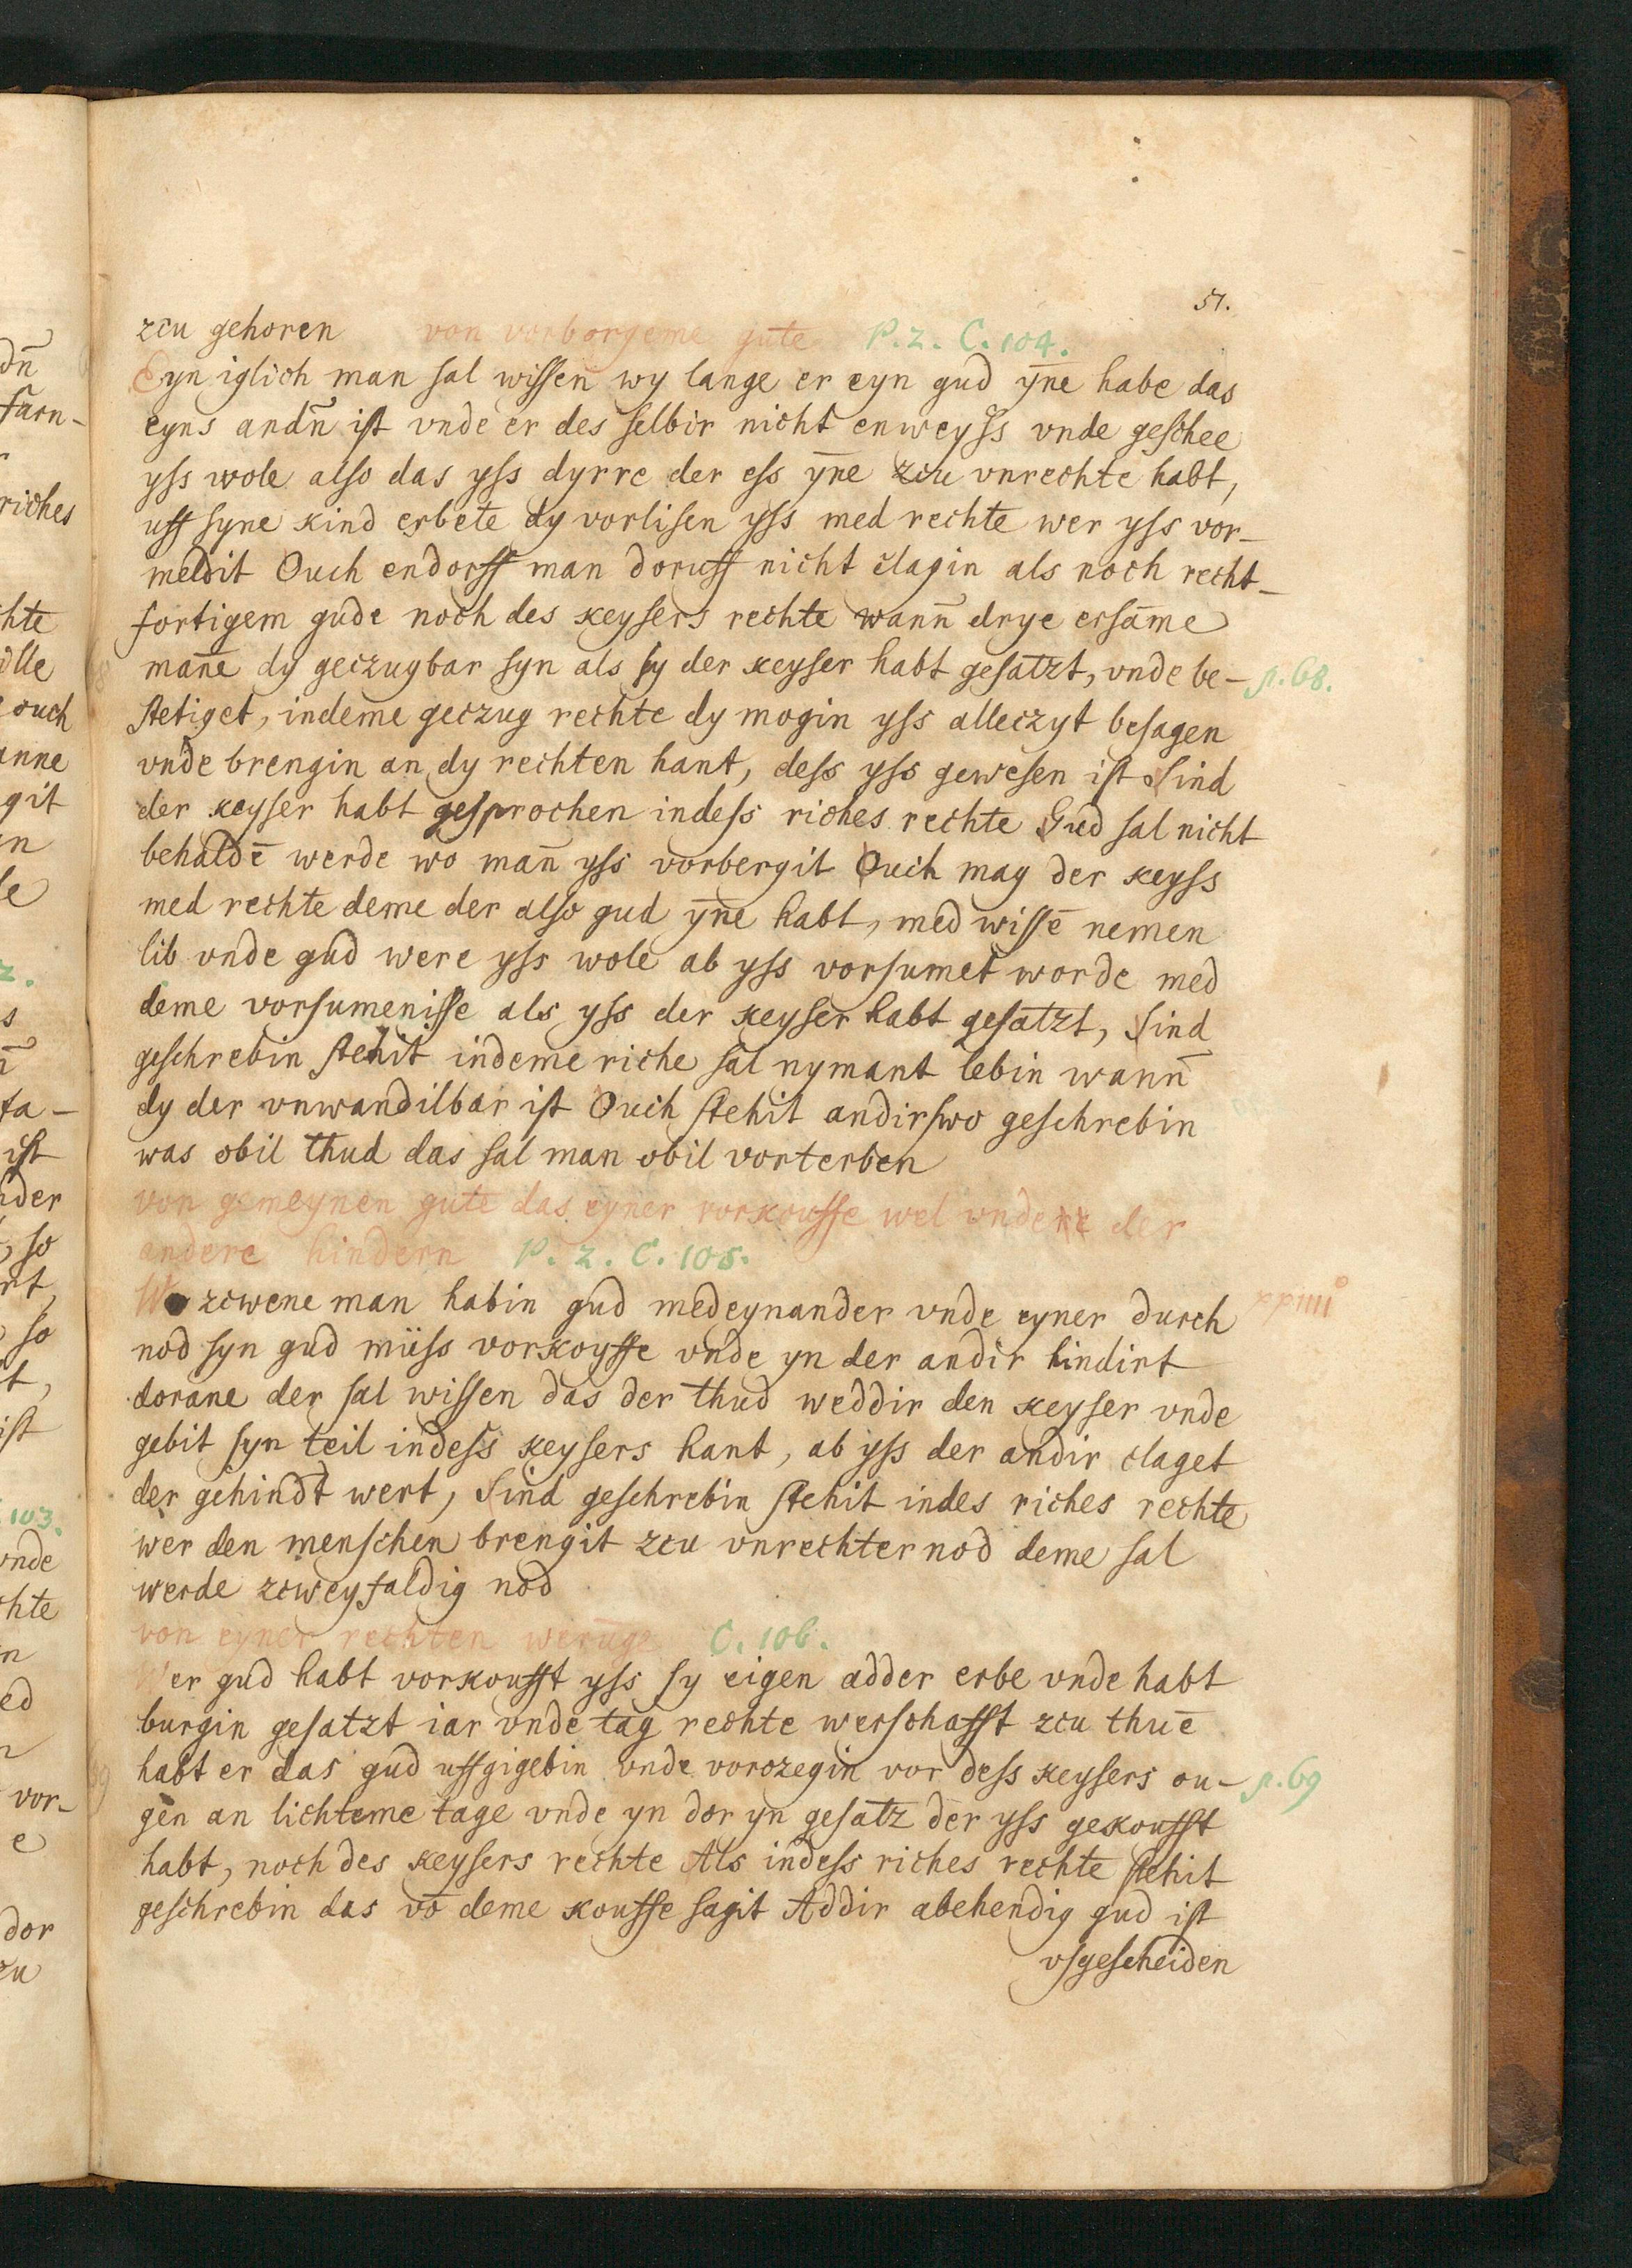 51.
zcu gehoren von vorborgeme gute P. 2. C. 104.
Eyn iglich man sal wissen wy lange er eyn gud yn̄e habe das
eyns andn̄ ist vnde er des selbir nicht enweyss vnde geschee
yss wole also das yss dyrre der ess yn̄e zcu vnrechte habt,
uff syne kind erbete dy vorlisen yss med rechte wer yss vor-
meldit Ouch endorff man doruff nicht clagin als noch recht-
fortigem gude noch des keysers rechte wann̄ drye ersam̄e
man̄e dy geczugbar syn als sy der keyser habt gesatzt, vnde be- p. 68.
stetiget, indeme geczug rechte dy mogin yss alleczyt besagen
vnde brengin an dy rechten hant, dess yss gewesen ist Sind
der keyser habt gesprochen indess riches rechte Gud sal nicht
behaldē werde wo man̄ yss vorbergit Ouch mag der keyss
med rechte deme der also gud yn̄e habt, med wissē nemen
lib vnde gud were yss wole ab yss vorsumet worde med
deme vorsumenisse als yss der keyser habt gesatzt, Sind
geschrebin stehit indeme riche sal nymant lebin wann̄
dy der vnwandilbar ist Ouch stehit andirswo geschrebin
was obil thud das sal man obil vorterben
von gemeynen gute das eyner vorkouffe wel vnde der
andere hindern P. 2. C. 105.
Wo zcwene man habin gud medeynander vnde eyner durch xxiiii°
nod syn gud müss vorkoyffe vnde yn der andir hindirt
dorane der sal wissen das der thud weddir den keyser vnde
gebit syn teil indess keysers hant, ab yss der andir claget
der gehindt wert, Sind geschrebin stehit indes riches rechte
wer den menschen brengit zcu vnrechter nod deme sal
werde zcweyfaldig nod
von eyner rechten werūge C. 106.
Wer gud habt vorkoufft yss sy eigen adder erbe vnde habt
burgin gesatzt iar vnde tag rechte werschafft zcu thuē
habt er das gud uffgigebin vnde vorczegin vor dess keysers ou- p. 69
gen an lichteme tage vnde yn dor yn gesatz der yss gekoufft
habt, noch des keysers rechte Als indess riches rechte stehit
geschrebin das vō deme kouffe sagit Addir abehendig gud ist
vsgescheiden